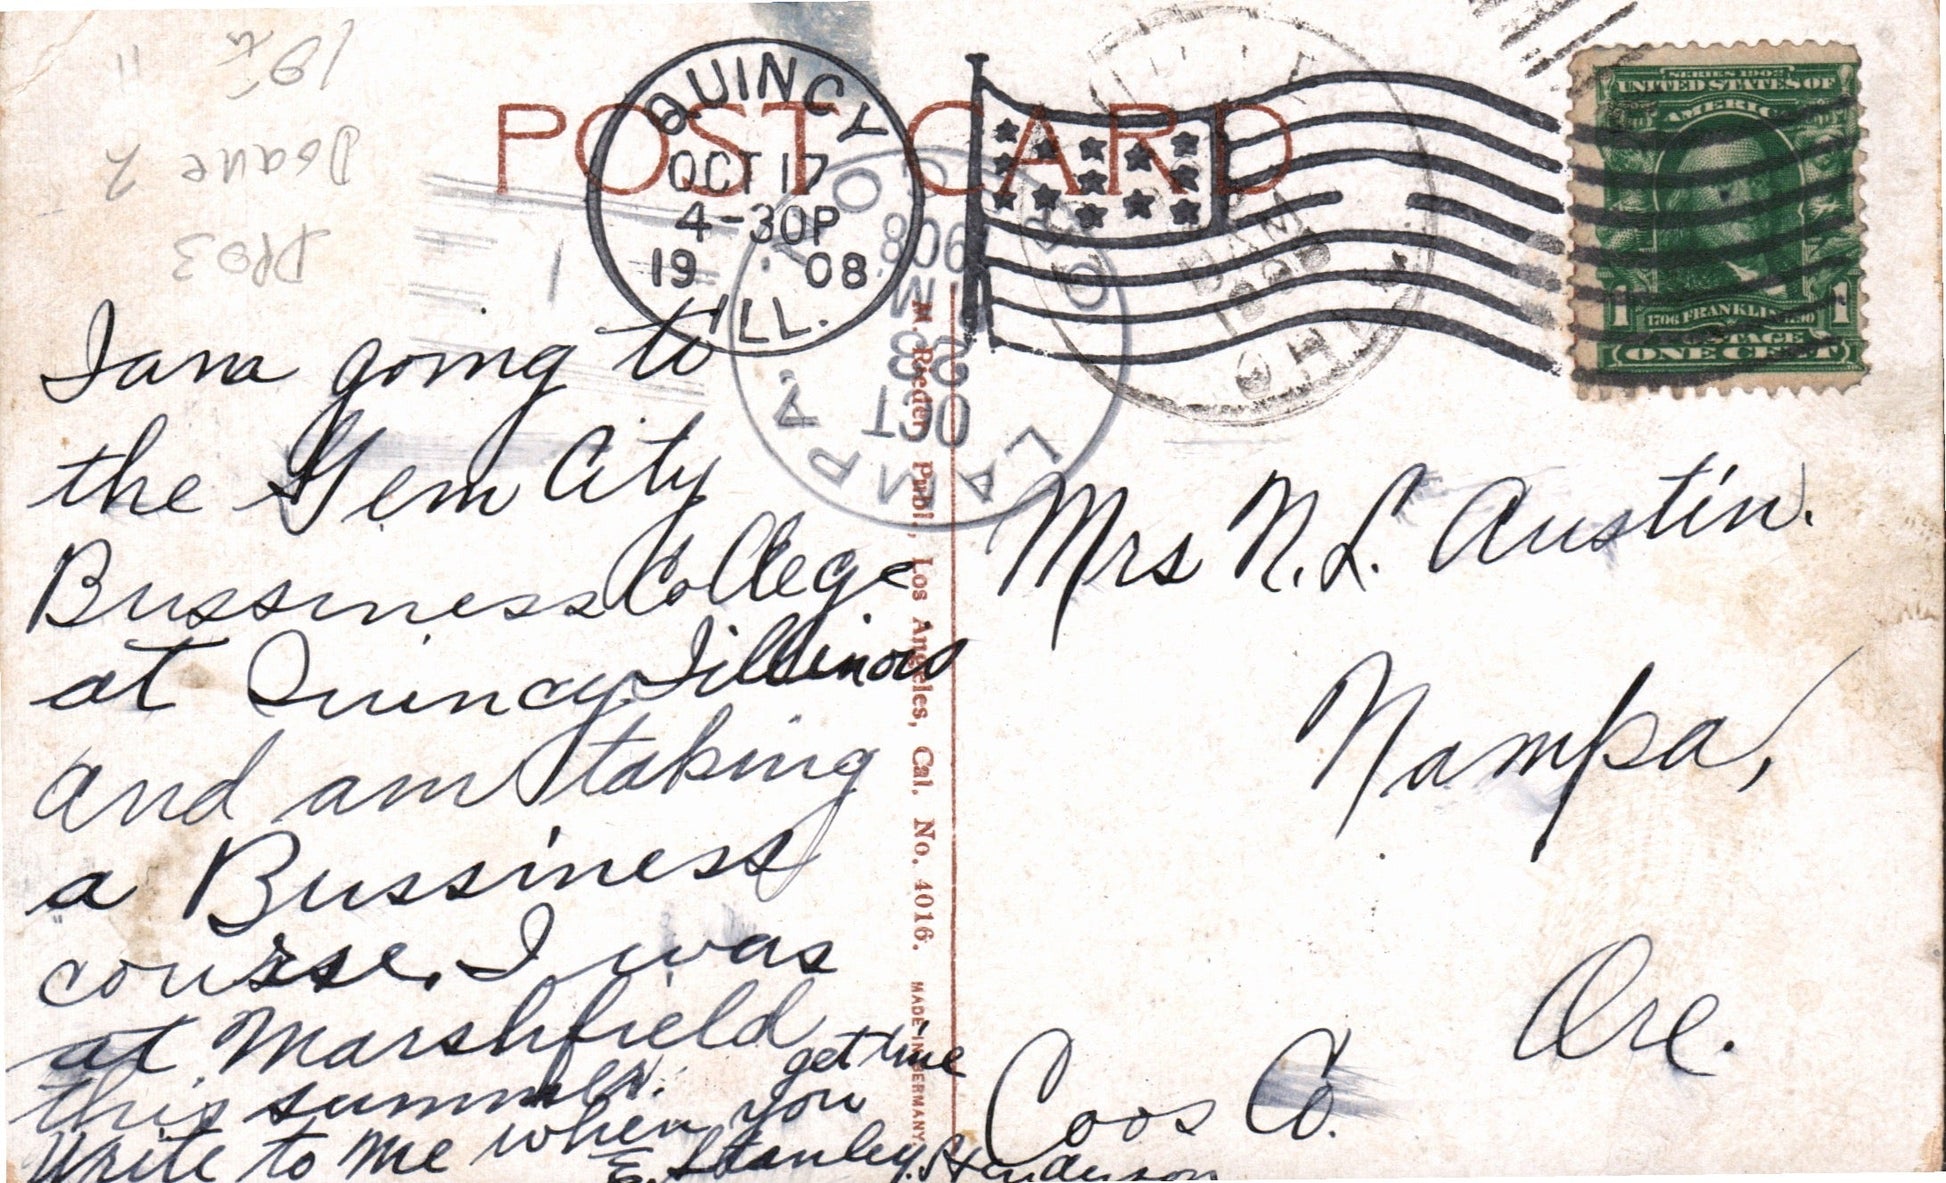 POST CARD
QUINCY
OCT 17
4-30P
19 08
ILL.
SERIES 1902
UNITED STATES OF
AMERICA
1 1706 FRANKLIN 1790 1
POSTAGE
ONE CENT
OCT
23
908
ORE
I am going to
the Gem City
Bussiness College
at Quincy Illinois
and am taking
a Bussiness
course. I was
at Marshfield
this summer.
Write to me when you get time
E. Stanley Henderson
M. Rieder, Publ., Los Angeles, Cal. No. 4016. MADE IN GERMANY.
Mrs N. L. Austin.
Nampa,
Ore.
Coos Co.